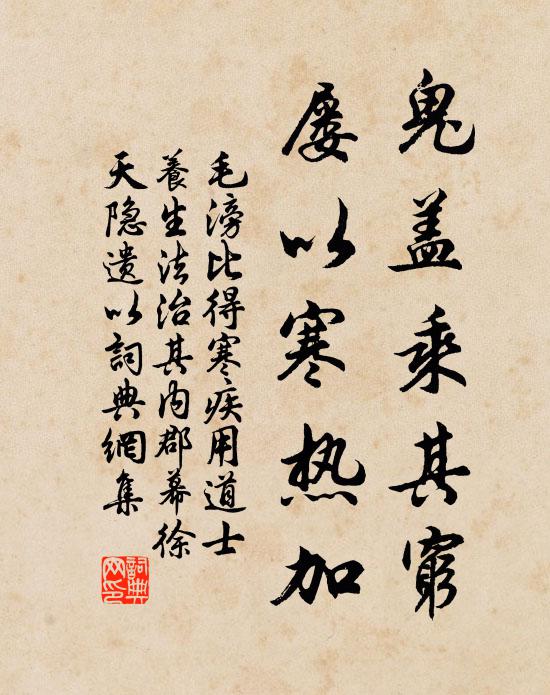 鬼盖乘其窮
屡以寒热加
毛滂比得寒疾用道士
養生法治其内郡幕徐
天隐遗以詞典網集
詞典网印